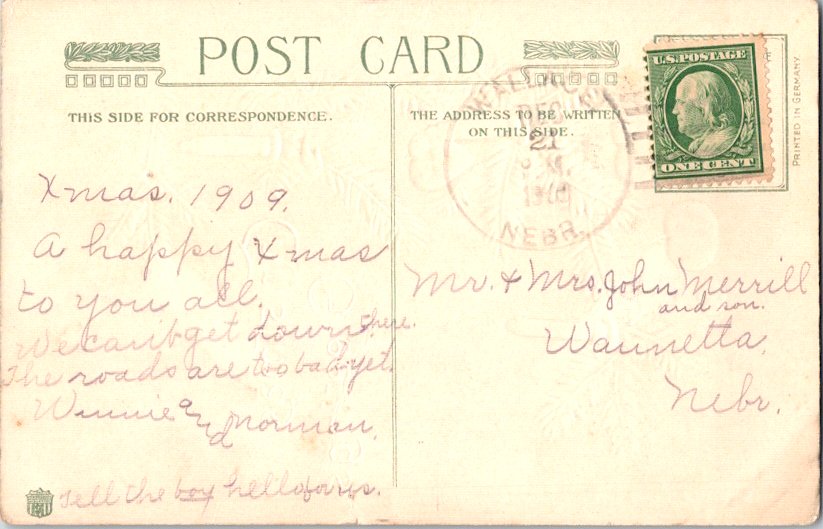 POST CARD
THIS SIDE FOR CORRESPONDENCE.
THE ADDRESS TO BE WRITTEN
ON THIS SIDE.
DEC
21
NEBR.
U.S. POSTAGE
ONE CENT
PRINTED IN GERMANY.
Xmas. 1909.
A happy Xmas
to you all.
We can't get down there.
The roads are too bad yet.
Winnie and Norman.
Tell the boy hello for us.
Mr. & Mrs. John Merrill
and son.
Waunetta,
Nebr.